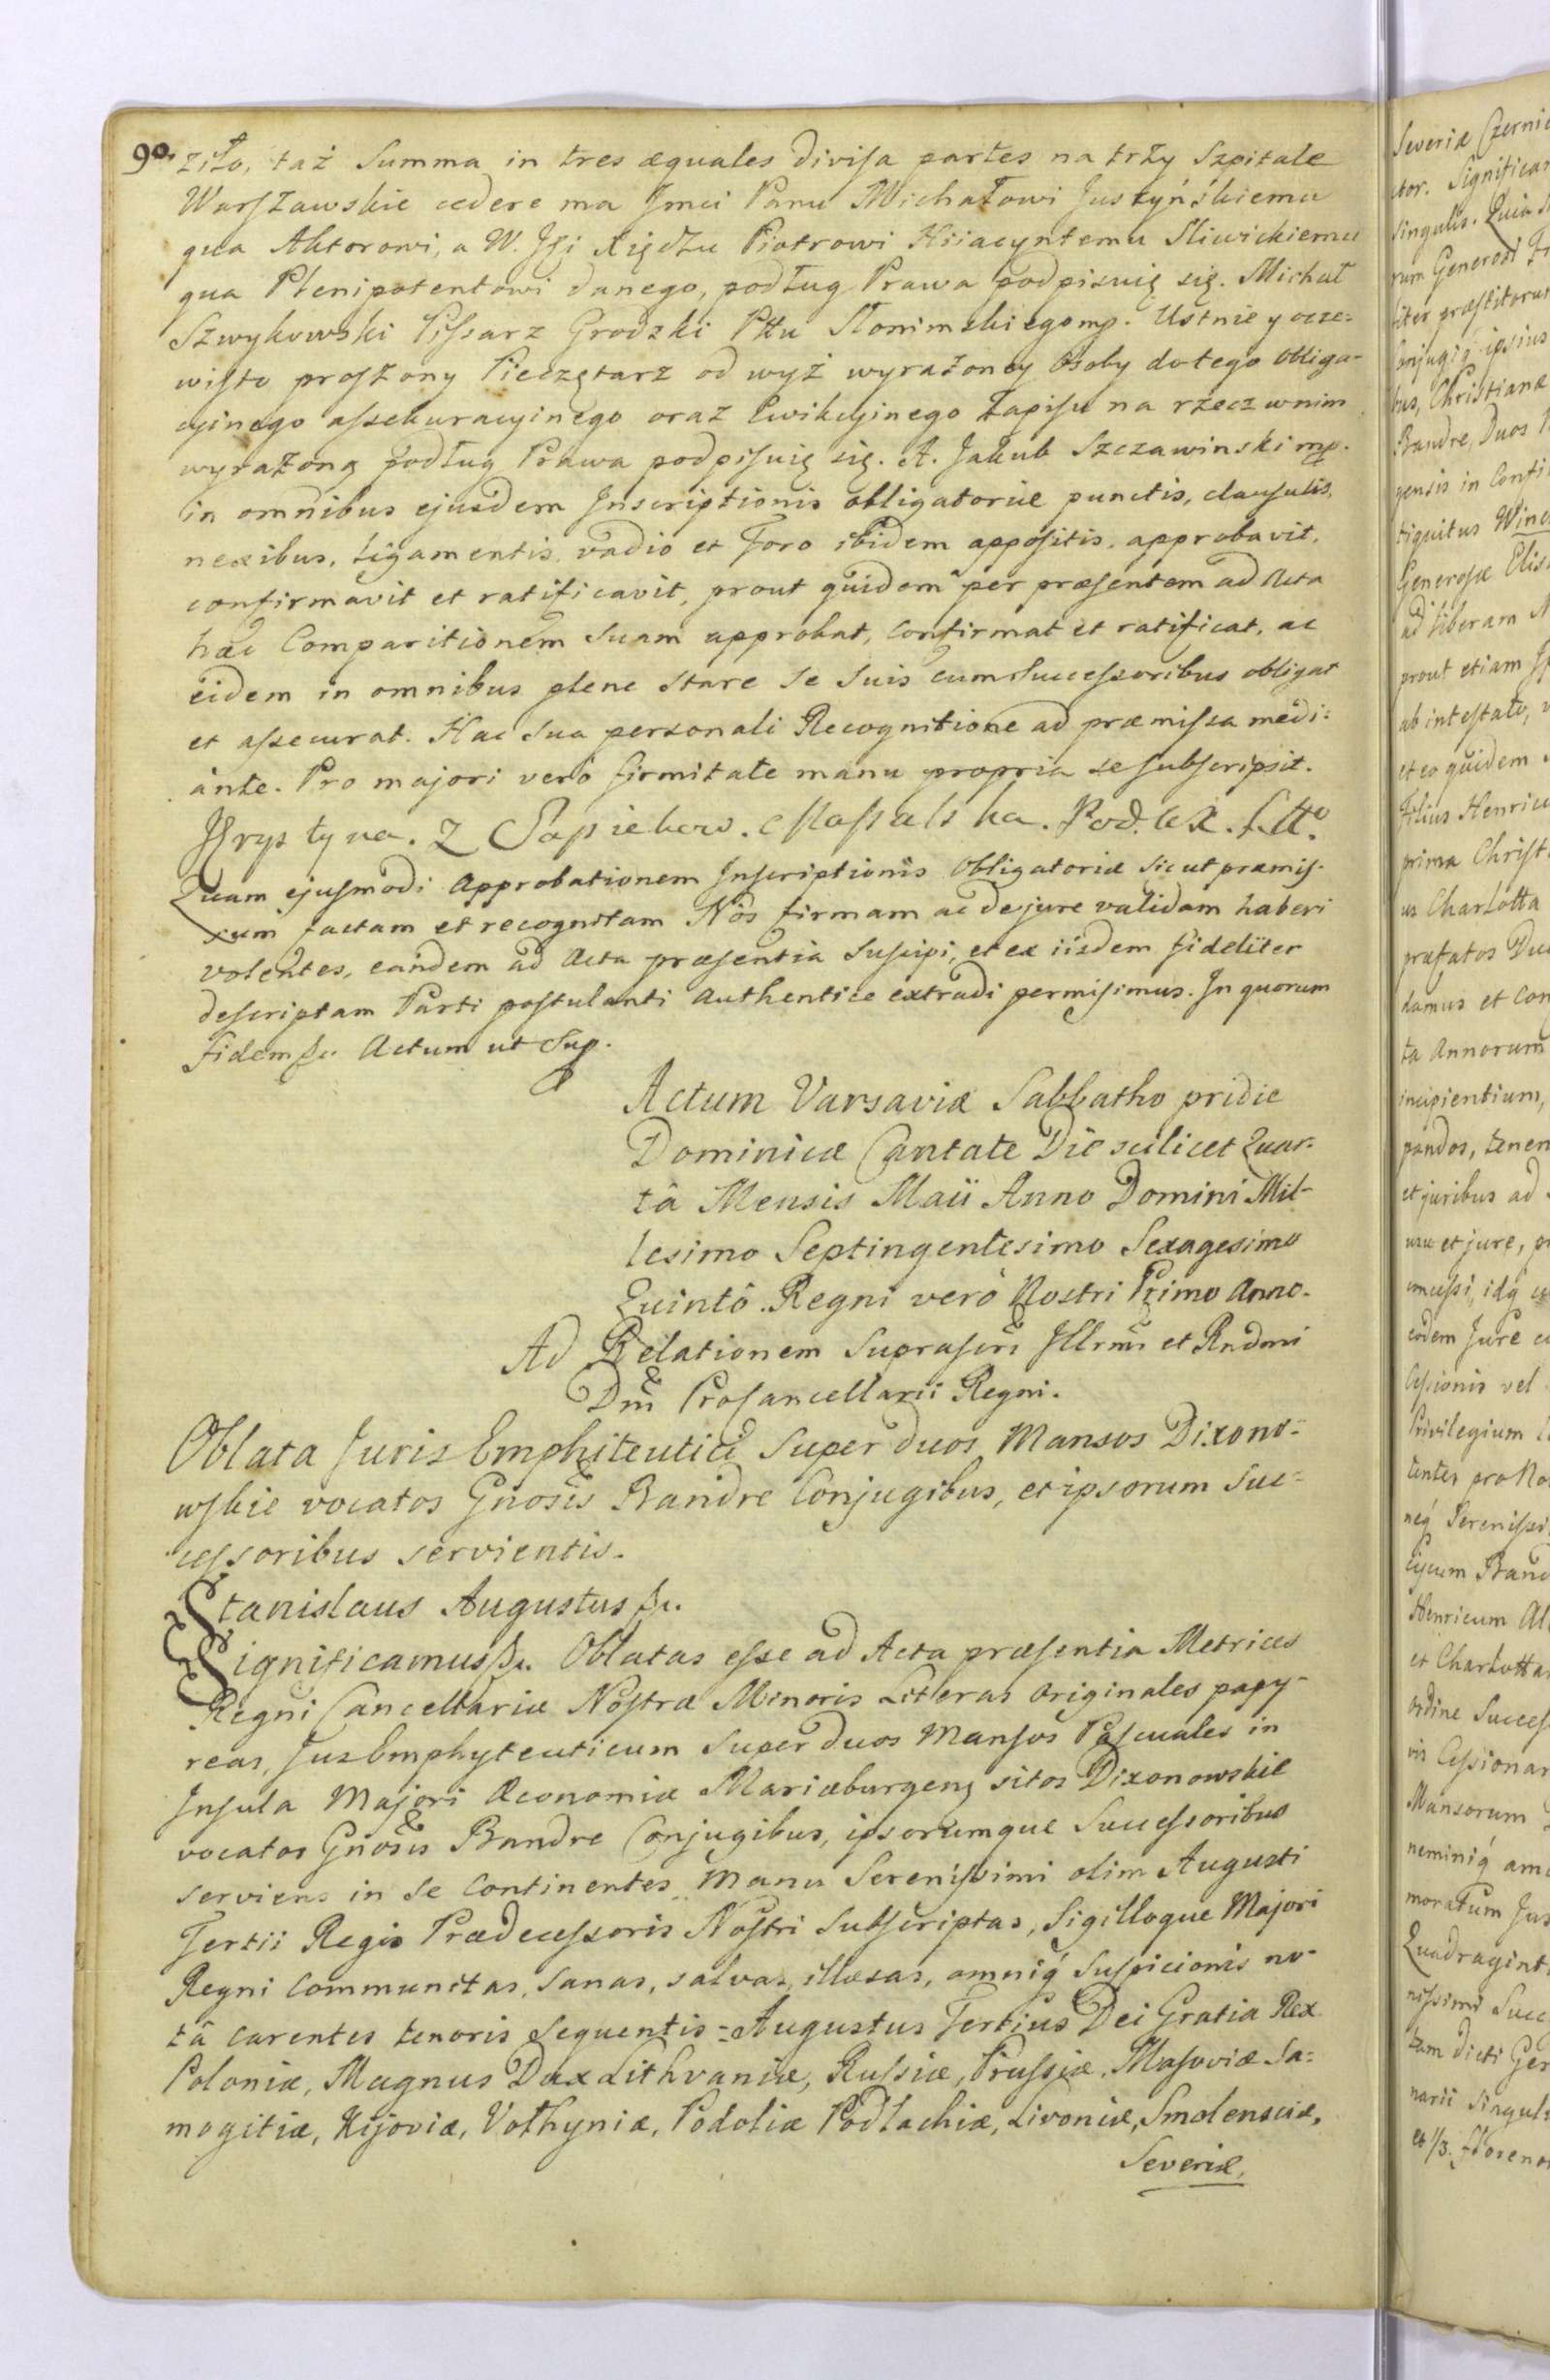 90.
ziło, taż Summa in tres æquales divisa partes na trzy Szpitale
Warszawskie cedere ma Jmci Panu Michałowi Justyńskiemu
qua Aktorowi, a W. JXi Xiędzu Piotrowi Hiiacyntemu Sliwickiemu
qua Plenipotentowi danego, podług Prawa podpisuię się. Michał
Szwykowski Pissarz Grodzki Pttu Słonimskiego mp. Ustnie y ocze=
wisto proszony Pieczętarz od wyż wyrażoney Osoby do tego obliga-
cyinego assekuracyinego oraz Ewikcyinego Zapisu na rzecz w nim
wyrażoną podług Prawa podpisuię się. A. Jakub Szczawinski mp.
in omnibus ejusdem Inscriptionis obligatoriæ punctis, clausulis,
nexibus, ligamentis, vadio et Foro ibidem appositis, approbavit,
confirmavit et ratificavit, prout quidem per præsentem ad Acta
hæc Comparitionem Suam approbat, Confirmat et ratificat, ac
eidem in omnibus plene Stare Se Suis cum Successoribus obligat
et assecurat. Hac Sua personali Recognitione ad præmissa medi=
ante. Pro majori verò firmitate manu propria se subscripsit.
Krystyna. Z Sapiehow. Massalska.
Quam ejusmodi Approbationem Inscriptionis Obligatoriæ Sic ut præmis-
sum factam et recognitam Nos firmam ac de jure validam haberi
volentes, eandem ad Acta præsentia Suscipi, et ex iisdem fideliter
descriptam Parti postulanti Authentice extradi permisimus. In quorum
fidem &c. Actum ut Sup.
Actum Varsaviæ Sabbatho pridie
Dominicæ Cantate Die scilicet Quar-
tâ Mensis Maii Anno Domini Mil-
lesimo Septingentesimo Sexagesimo
Quintô Regni verò Nostri Primo Anno.
Ad Relationem Suprascri Illrmi et Rndmi
Dni Procancellarii Regni.
Oblata Juris Emphiteutici Super duos Mansos Dixono-
wskie vocatos Gnosis Bandre Conjugibus, et ipsorum Suc=
cessoribus servientis.
Stanislaus Augustus &c.
Significamus &c. Oblatas esse ad Acta præsentia Metrices
Regni Cancellariæ Nostræ Minoris Literas Originales papy-
reas, Jus Emphyteuticum Super duos Mansos Pascuales in
Insula Majori Œconomiæ Mariæburgens sitos Dixonowskie
vocatos Gnosis Bandre Conjugibus, ipsorumque Successoribus
serviens in Se Continentes Manu Serenissimi olim Augusti
Tertii Regis Prædecessoris Nostri Subscriptas, Sigilloque Majori
Regni Communitas, Sanas, salvas, illæsas, omniq́ Suspicionis no-
tâ carentes tenoris Sequentis = Augustus Tertius Dei Gratia Rex
Poloniæ, Magnus Dux Lithvaniæ, Russiæ, Prussiæ, Masoviæ Sa=
mogitiæ, Kijoviæ, Volhyniæ, Podoliæ Podlachiæ, Livoniæ, Smolensciæ,
Severiæ,
Severiæ Czernic
ctor. Significam
singulis. Quia
rum Generosi
præstitorum
Conjugis ipsius
bus, Christianæ
Bandre, Duos
gensis in Conti
tiquitus
Generosæ Elis
ad liberam
prout etiam
ab intestato,
et eo quidem
filius Henricu
prima Christ
us Charlotta
præfatos Du
damus et Con
ta Annorum
incipientium,
pandos, tenen
et juribus ad
usu et jure,
concessi, idq́
eodem Jure
Cessionis vel
Privilegium
tentes pro No
neq́ Serenissi
Band
Henricum Al
et Charlotta
ordine Success
vis Cessionar
Mansorum
neminiq́ am
moratum Jus
Quadragint
nissimi Succ
tam dicti Ge
narii singul
et 1/3. floreno